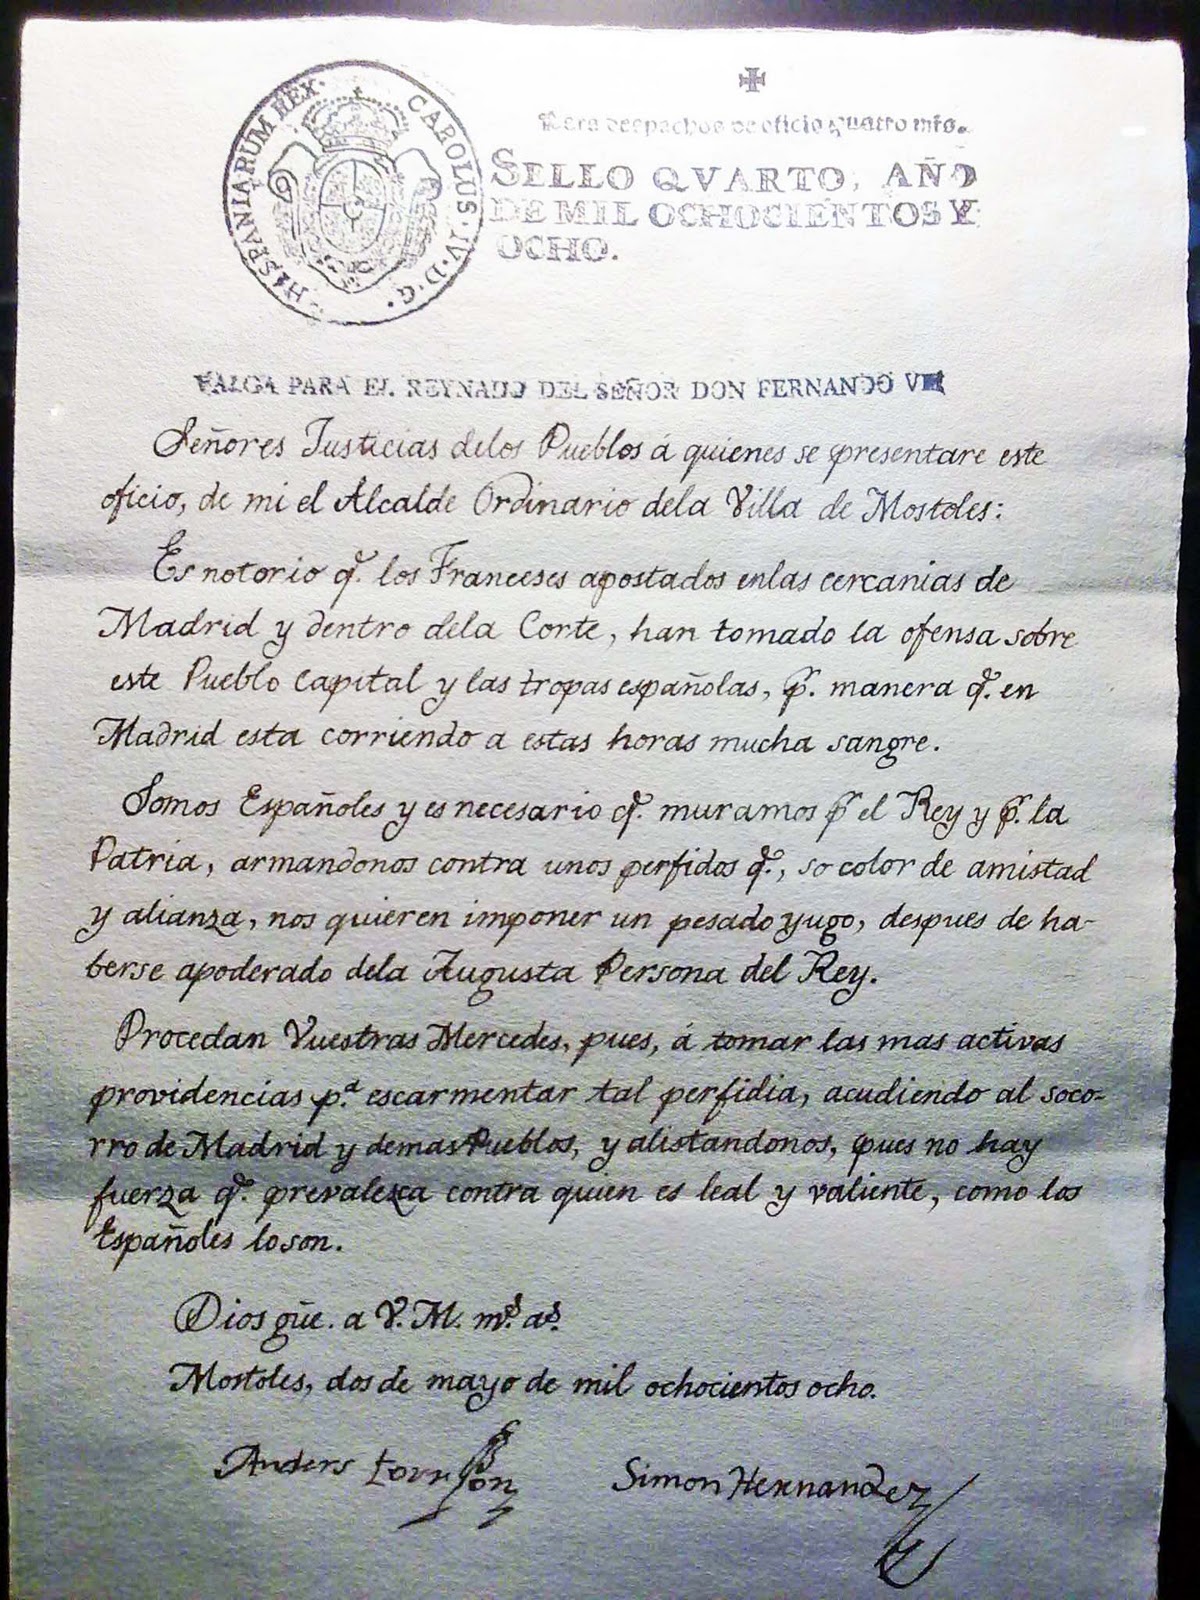 CAROLUS · IV · D · G · HISPANIARUM REX ·
Para despachos de oficio quatro mrs.
SELLO QVARTO, AÑO
DE MIL OCHOCIENTOS Y
OCHO.
VALGA PARA EL REYNADO DEL SEÑOR DON FERNANDO VII
Señores Justicias delos Pueblos á quienes se presentare este
oficio, de mi el Alcalde Ordinario dela Villa de Mostoles:
Es notorio q.e los Franceses apostados enlas cercanias de
Madrid y dentro dela Corte, han tomado la ofensa sobre
este Pueblo Capital y las tropas españolas, p.r manera q.e en
Madrid esta corriendo a estas horas mucha sangre.
Somos Españoles y es necesario q.e muramos p.r el Rey y p.r la
Patria, armandonos contra unos perfidos q.e, so color de amistad
y alianza, nos quieren imponer un pesado yugo, despues de ha-
berse apoderado dela Augusta Persona del Rey.
Procedan Vuestras Mercedes, pues, á tomar las mas activas
providencias p.a escarmentar tal perfidia, acudiendo al soco-
rro de Madrid y demas Pueblos, y alistandonos, pues no hay
fuerza q.e prevalezca contra quien es leal y valiente, como los
Españoles lo son.
Dios gue. a V. M. m.s a.s
Mostoles, dos de mayo de mil ochocientos ocho.
Anders Torrejon Simon Hernandez